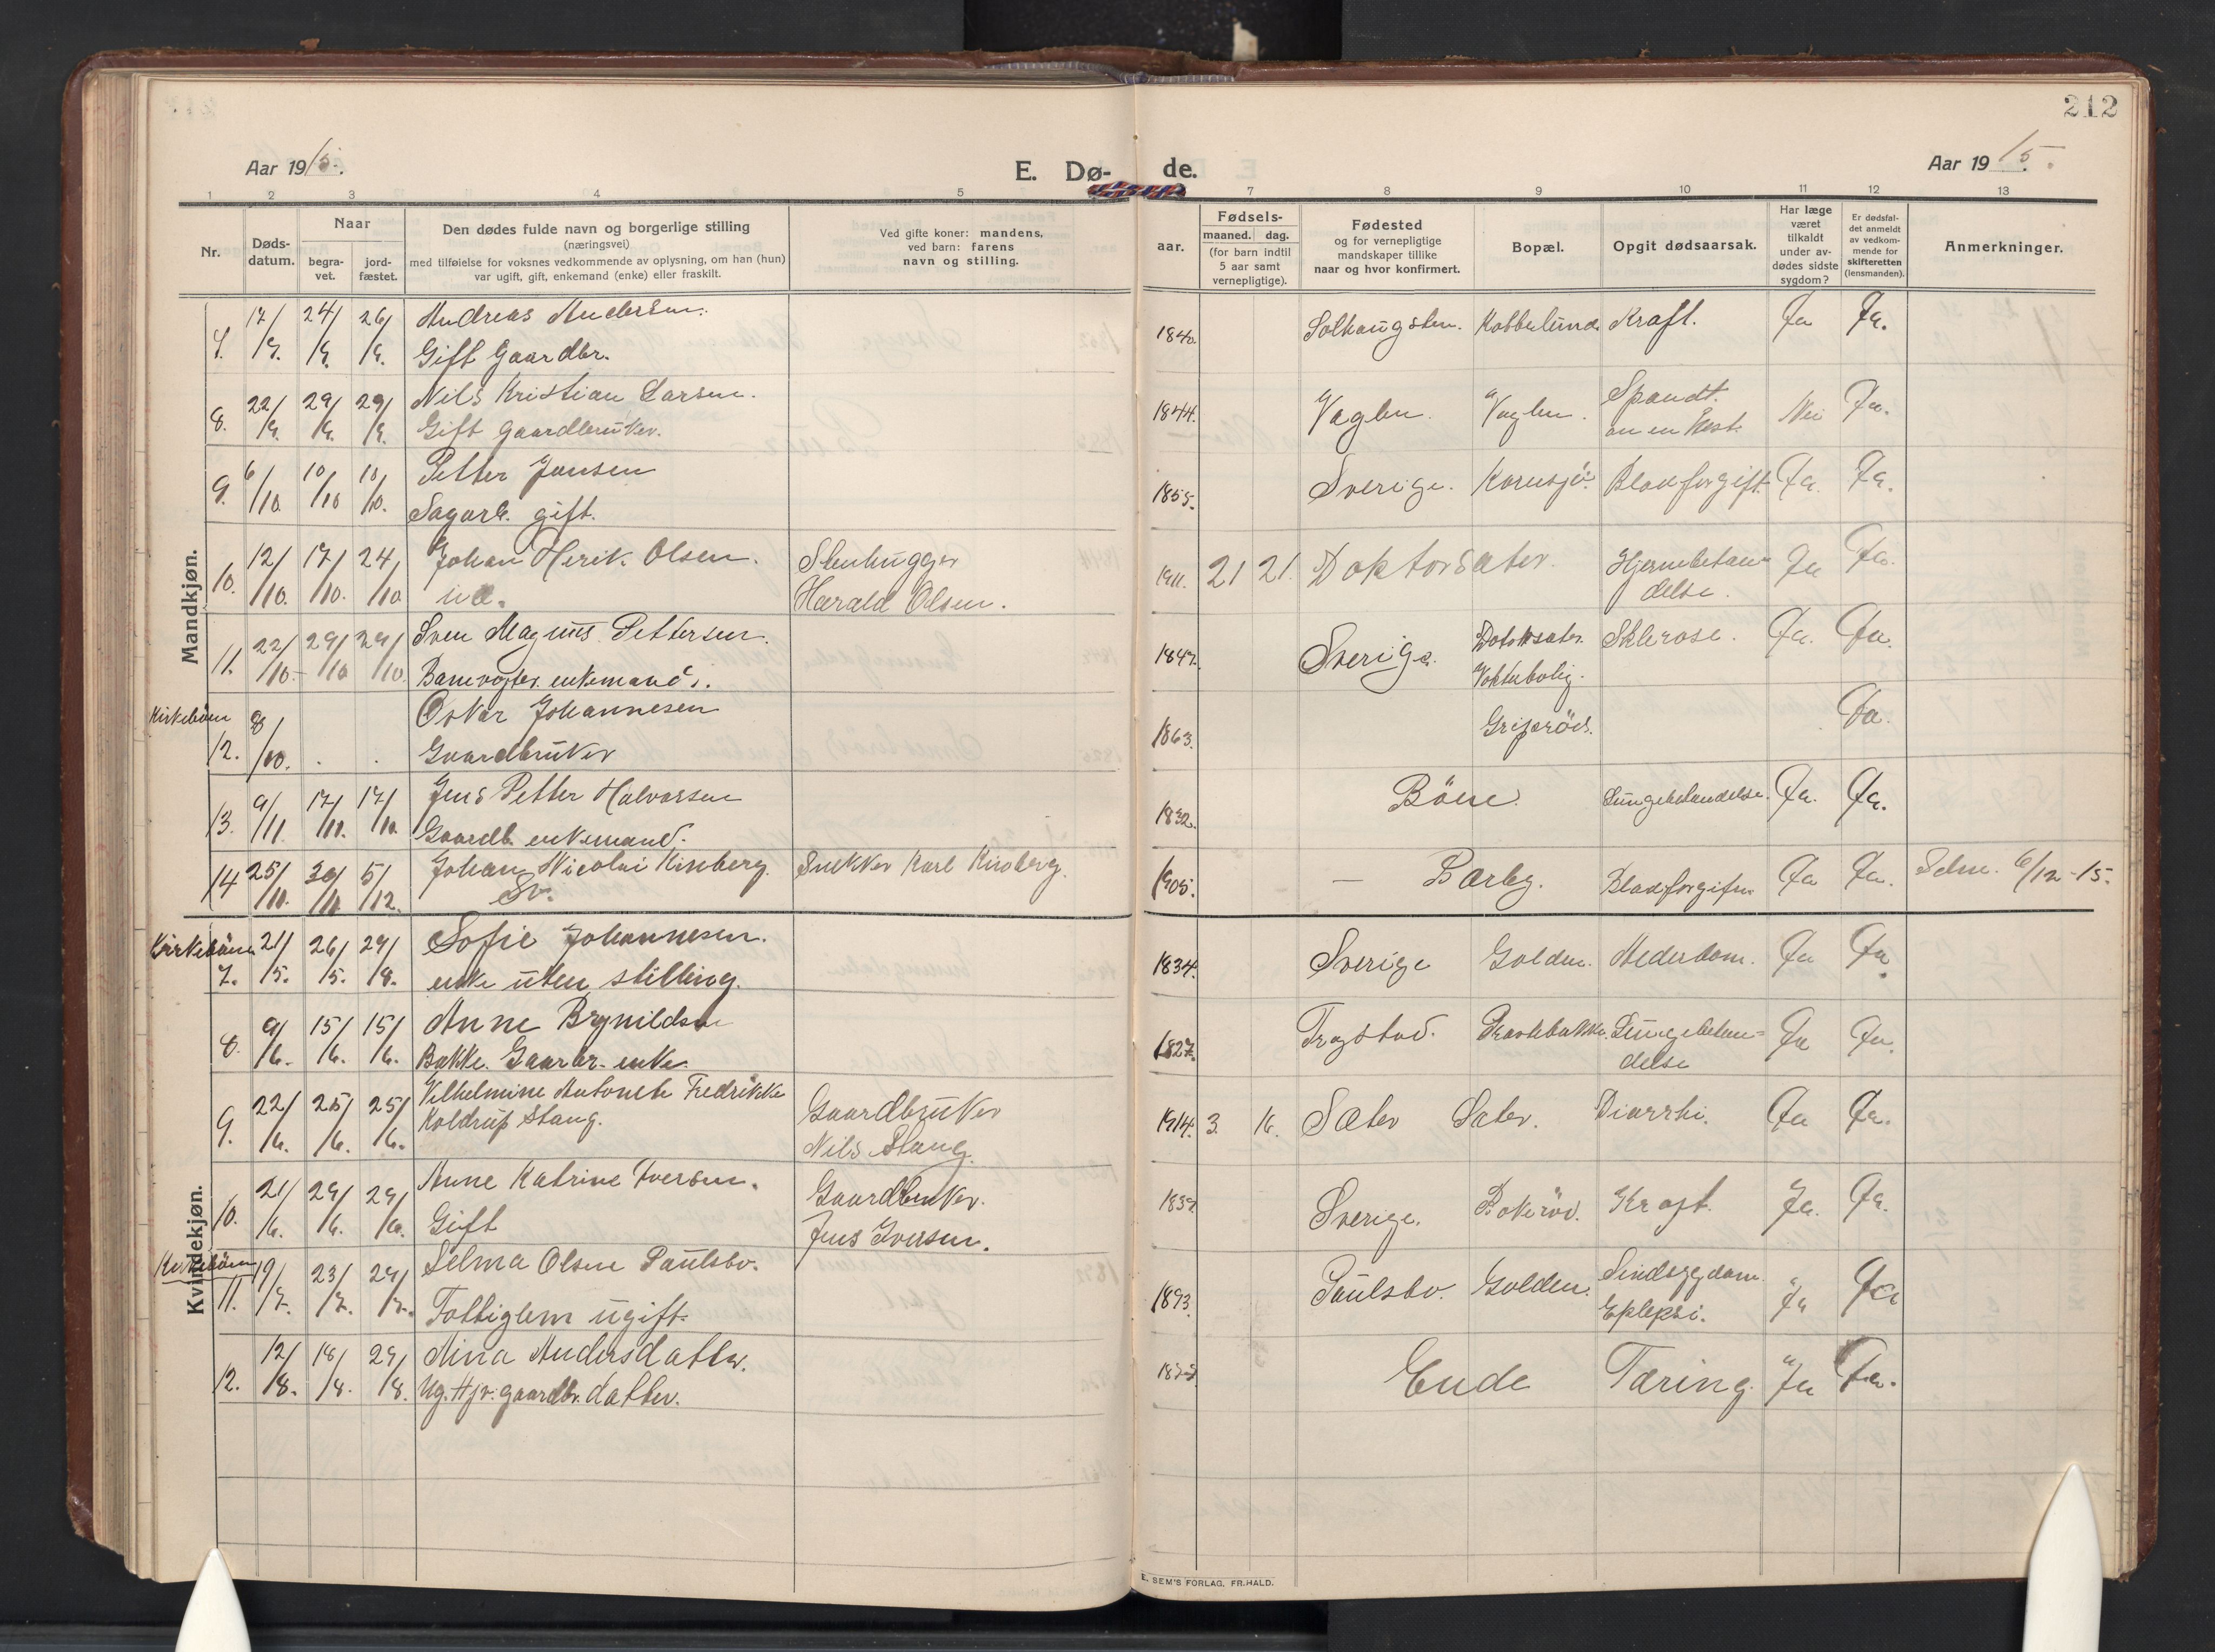 212
Aar 1915.
E. Dø-
de.
Aar 1915.
1 2 3 4 5 7 8 9 10 11 12 13
Nr.
Døds-
datum.
Naar
begra-
vet.
jord-
fæstet.
Den dødes fulde navn og borgerlige stilling
(næringsvei)
med tilføielse for voksnes vedkommende av oplysning, om han (hun)
var ugift, gift, enkemand (enke) eller fraskilt.
Ved gifte koner: mandens,
ved barn: farens
navn og stilling.
aar.
Fødsels-
maaned. dag.
(for barn indtil
5 aar samt
vernepligtige).
Fødested
og for vernepligtige
mandskaper tillike
naar og hvor konfirmert.
Bopæl.
Opgit dødsaarsak.
Har læge
været
tilkaldt
under av-
dødes sidste
sygdom?
Er dødsfal-
det anmeldt
av vedkom-
mende for
skifteretten
(lensmanden).
Anmerkninger.
Mandkjøn.
17/9. 24/9. 26/9. Andreas Andersen. 1840. Kraft. Ja Ja.
Gift Gaardbr.
8. 22/9. 29/9. 29/9. Nils Kristian Larsen. 1844. Vaglen. Vaglen. Spændt. Nei Ja.
Gift gaardbruker. av en Hest.
9. 6/10. 10/10 10/10. Petter Jansen 1855. Sverige. Kornsjö. Blodforgift. Ja. Ja.
Sagarb. gift.
10. 12/10. 17/10. 24/10 Johan Henrik Olsen. Stenhugger 1911. 21 21. Doktorsæter. Hjernebetæn- Ja Ja.
Harald Olsen. delse.
11. 22/10. 29/10 29/10. Sven Magnus Pettersen. 1847. Sverige. Sklerose. Ja. Ja.
Banevogter. enkemand. Vokterbolig.
Kirkebøen
12. 8/10. Oskar Johannesen 1863. Ja.
Gaardbruker
13. 9/11. 17/11. 17/11. Jens Petter Halvorsen 1832. Böen. Lungebetændelse. Ja. Ja.
Gaardb. enkemand.
14 25/11. 30/11 5/12. Johan Nicolai Kinberg. Snekker Karl Kinberg. 1905. — Barby. Blodforgifn. Ja Ja. 6/12-15.
Sv.
Kvindekjøn.
Kirkebøen
7. 21/5. 26/5. 29/8. Sofie Johannesen. 1834. Sverige Golden. Alderdom. Ja Ja.
enke uten stilling.
8. 9/6. 15/6. 15/6. Anne Brynildsen 1827. Trøgstad. Lungebetæn- Ja Ja.
Bakke. Gaarbr. enke. delse
9. 22/6. 25/6. 25/6. Vilhelmine Antonete Fredrikke Gaardbruker 1914. 3. 16. Sæter Sæter. Diarrhi. Ja Ja.
Koldrup Stang. Nils Stang.
10. 21/6. 29/6. 29/6. Anne Katrine Iversen. Gaardbruker. Sverige. Kraft. Ja. Ja.
Gift Jens Iversen.
Kirkebøen
11. 19/7. 23/7. 29/7. Selma Olsen Paulsbo. 1893. Paulsbo. Golden. Sindssygdom. Ja Ja
Fattiglem ugift. Eplepsi.
12. 12/8. 18/8. 29/8. Nina Andersdatter. Ende Tæring. Ja Ja.
Ug. Hjv. gaardbr. datter.
E. SEM'S FORLAG, FR.HALD.